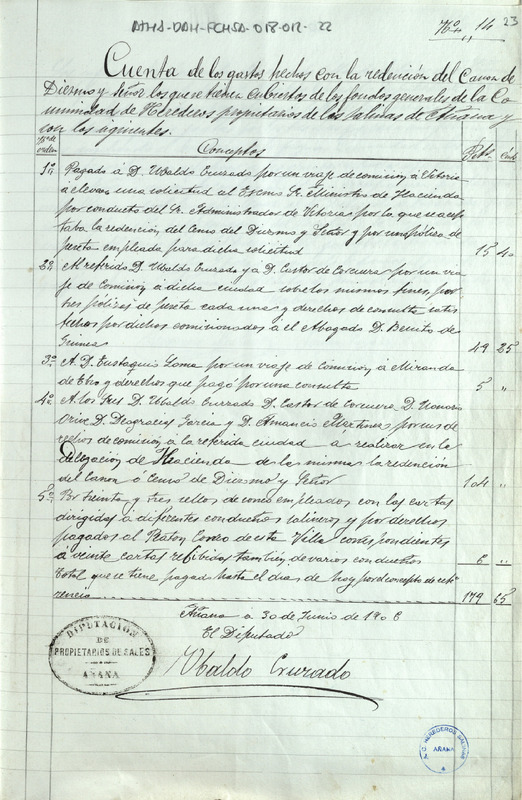 ATHA-DAH-FCHSA-018-012-22
Nº 14 23
Cuenta de los gastos hechos con la redención del Canon de
Diezmo y Señor los que se tienen cubiertos de los fondos generales de la Co
munidad de Herederos propietarios de las salinas de Añana y
son los siguientes.
Nº de orden Conceptos Pets. Cents
1º Pagado á D. Ubaldo Cruzado por un viaje de comision á Vitoria
á llevar una solicitud al Excmo Sr. Ministro de Hacienda
por conducto del Sr. Administrador de Vitoria por la que se acep
taba la redención del Censo del Diezmo y Señor y por una póliza de
peseta empleada para dicha solicitud 15 40
2º Al referido D. Ubaldo Cruzado y a D. Castor de Corcuera por un via
je de Comision á dicha ciudad sobre los mismos fines, por
tres pólizas de peseta cada una y derechos de consulta satis
fechos por dichos comisionados á el Abogado D. Benito de
Guinea 49 25
3º A D. Eustaquio Loma por un viaje de comision á Miranda
de Ebro y derechos que pagó por una consulta 5 "
4º A los Sres D. Ubaldo Cruzado D. Castor de Corcuera D. Honorio
Orive D. Deogracias Garcia y D. Amancio Martinez por sus de
rechos de comision á la referida ciudad a realizar en la
Delegacion de Hacienda de la misma la redención
del Canon ó Censo de Diezmo y Señor 104 "
5º Por treinta y tres sellos de correo empleados con las cartas
dirigidas á diferentes conductos salineros y por derechos
pagados al Peaton Correo de esta Villa correspondientes
á veinte cartas recibidas tambien de varios conductos 6 "
Total que se tiene pagado hasta el dia de hoy por el concepto de refe
rencia 179 65
Añana á 30 de Junio de 1906
El Diputado
Ubaldo Cruzado
DIPUTACION
DE
PROPIETARIOS DE SALES
AÑANA
HEREDEROS SALINAS
AÑANA